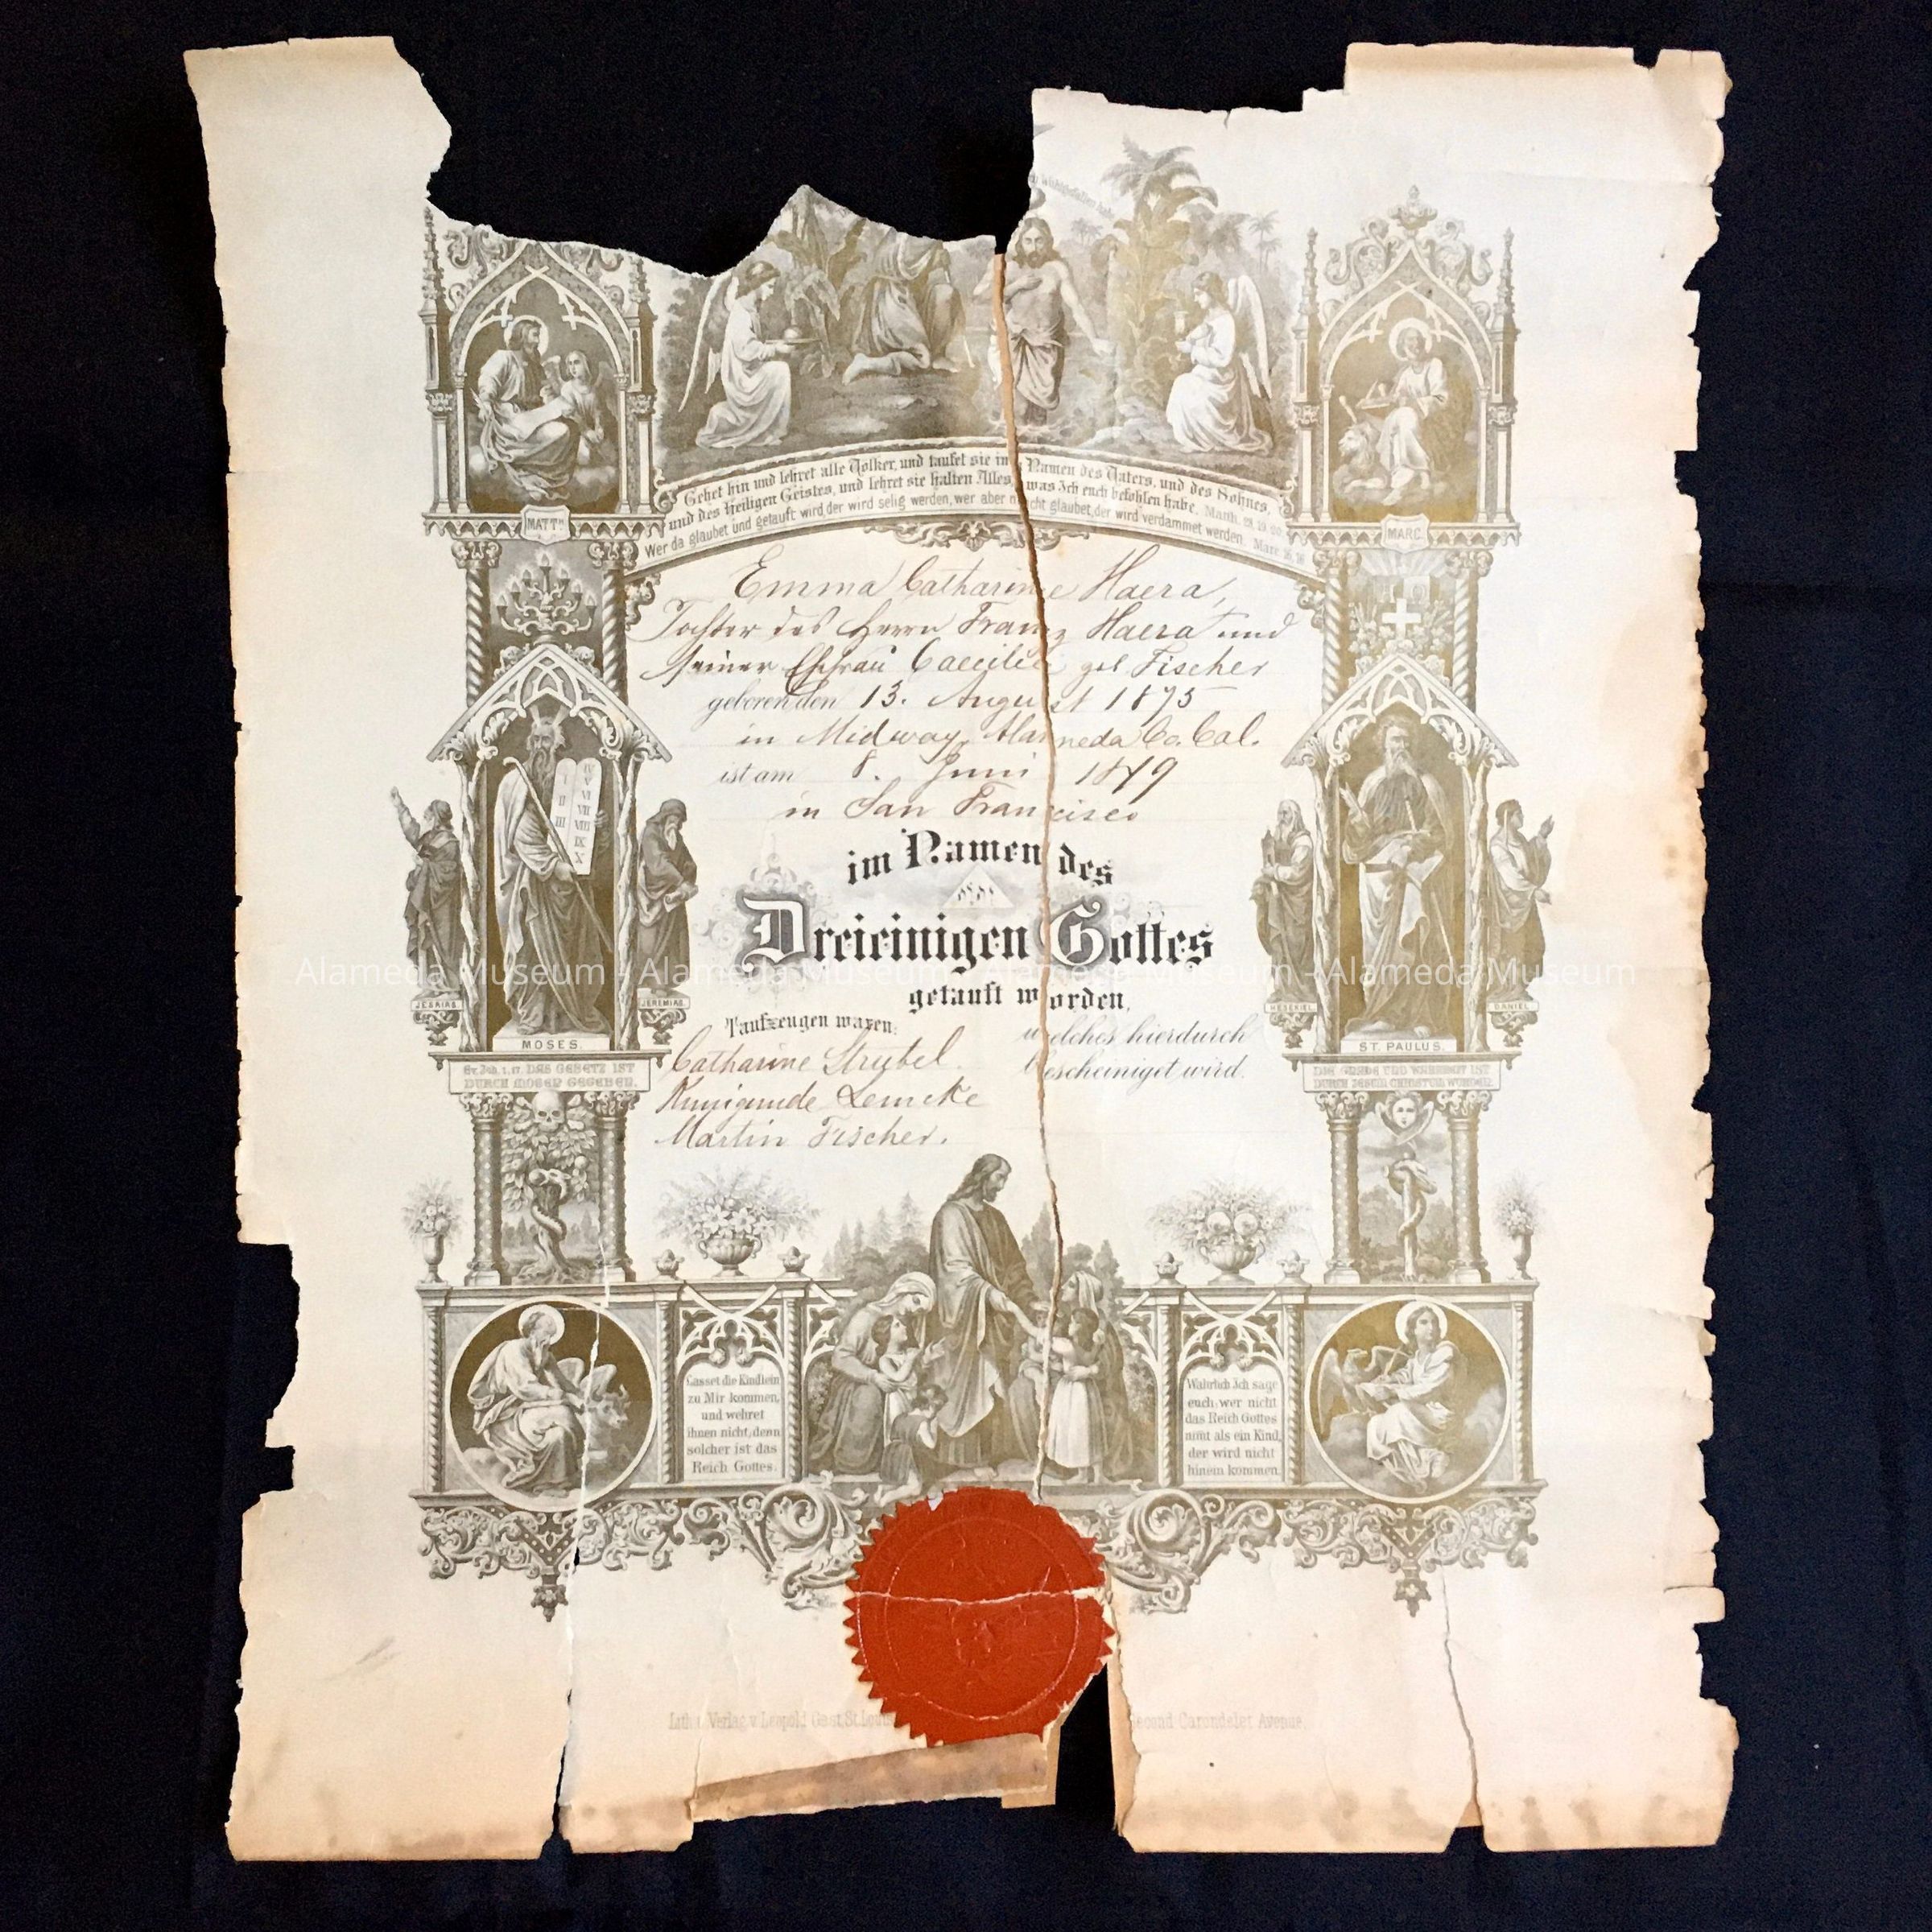 Wohlgefallen habe
Gehet hin und lehret alle Völker, und taufet sie im Namen des Vaters, und des Sohnes,
und des Heiligen Geistes, und lehret sie halten Alles, was Ich euch befohlen habe. Matth. 28. 19. 20.
Wer da glaubet und getauft wird der wird selig werden, wer aber nicht glaubet, der wird verdammet werden. Marc 16. 16
MATTH
MARC.
Emma Catharine Haera,
Tochter des Herrn Franz Haera und
seiner Ehefrau Caecilie geb Fischer
geboren den 13. August 1875
in Midway, Alameda Co. Cal.
ist am 8. Juni 1879
in San Francisco
im Namen des
Dreieinigen Gottes
getauft worden,
Taufzeugen waren:
welches hierdurch
Catharine Strubel.
bescheiniget wird.
Kunigunde Lemcke
Martin Fischer.
I II III IV V VI VII VIII IX X
JESAIAS.
MOSES.
JEREMIAS.
HESEKIEL.
ST. PAULUS.
DANIEL.
Ev. Joh. 1. 17. DAS GESETZ IST
DURCH MOSEN GEGEBEN.
DIE GNADE UND WAHRHEIT IST
DURCH JESUM CHRISTUM WORDEN.
Lasset die Kindlein
zu Mir kommen,
und wehret
ihnen nicht, denn
solcher ist das
Reich Gottes.
Wahrlich Ich sage
euch: wer nicht
das Reich Gottes
nimt als ein Kind,
der wird nicht
hinein kommen.
Lith. u. Verlag v. Leopold Gast, St. Louis
Second Carondelet Avenue.
Alameda Museum - Alameda Museum - Alameda Museum - Alameda Museum